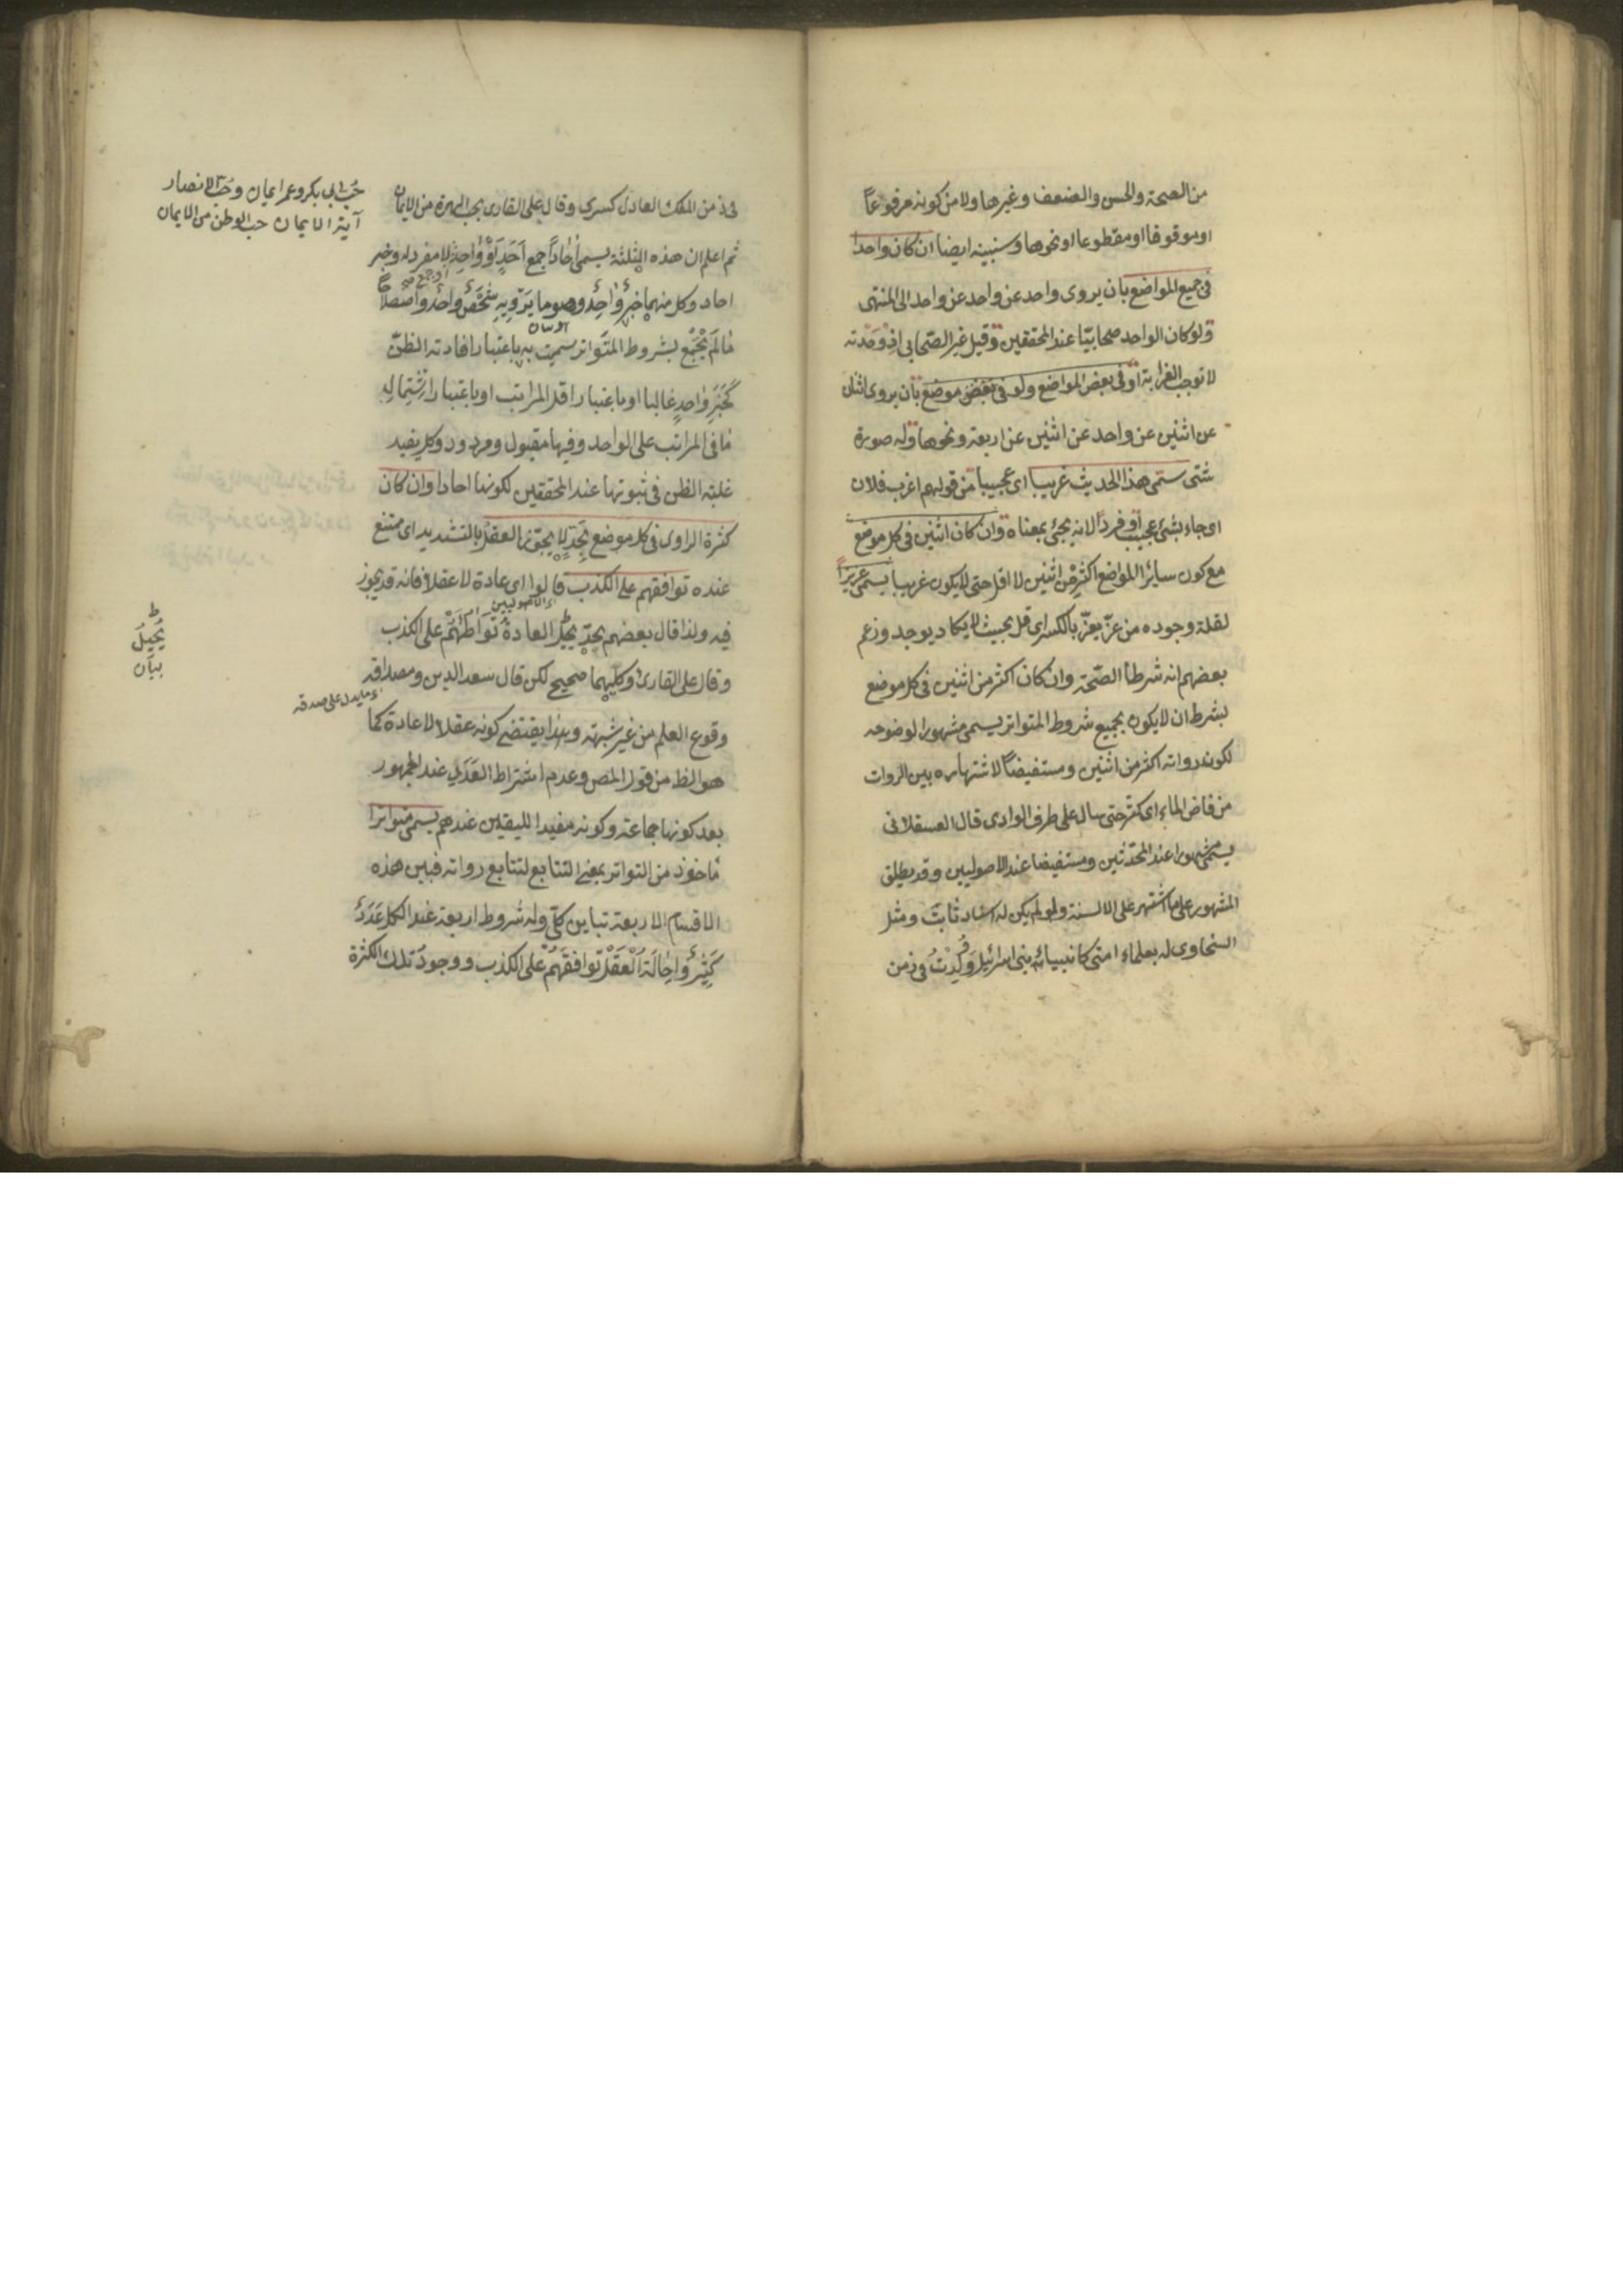 من الصحة والحسن والضعف وغيرها ولا من كونه مرفوعاً
او موقوفا او مقطوعا او نحوها وسنبينه ايضا ان كان واحدا
فى جميع المواضع بان يروى واحد عن واحد عن واحد الى المنتهى
ولو كان الواحد صحابيّا عند المحققين وقيل غير الصّحابى اذ وحدته
لا توجب الغرابة او فى بعض المواضع ولو فى بعض موضع بان يروى اثنان
عن اثنين عن واحد عن اثنين عن اربعة ونحوها وله صورة
شتّى سمّى هذا الحديث غريبا اى عجيبا من قولهم اغرب فلان
اى جاء بشئ عجيب او فردا لانه يجئ بمعناه وان كان اثنين فى كل موضع
مع كون سائر المواضع اكثر من اثنين لا اقل حتى لا يكون غريبا يسمى عزيزاً
لقلة وجوده من عزّ يعزّ بالكسر اى قل بحيث لا يكاد يوجد وزعم
بعضهم انه شرط الصّحة وان كان اكثر من اثنين فى كل موضع
بشرط ان لا يكون بجميع شروط المتواتر يسمى مشهورا لوضوحه
لكون رواته اكثر من اثنين ومستفيضاً لاشتهاره بين الروات
من فاض الماء اى كثر حتى سال على طرف الوادى قال العسقلانى
يسمّى مشهورا عند المحدّثين ومستفيضا عند الاصوليين وقد يطلق
المشهور على ما اشتهر على الالسنة ولو لم يكن له اسناد ثابت ومثل
السخاوى له بعلماء امتى كانبياء بنى اسرائيل وَوُلِدْتُ فى زمن
فى زمن الملك العادل كسرى وقال على القارى بحب الهرة من الايمان
حُبّ ابى بكر وعمر ايمان وحُبّ الانصار
آية الايمان حب الوطن من الايمان
ثم اعلم ان هذه الثلثة يسمى اٰحاداً جمع اَحَدٍ اَوْ وٰاحِدٍ لا مفرد له وخبر
احاد وكل منهما خبرُ وٰاحِدٍ وهو ما يَرْوِيهِ شَخْصٌ واحد واصطلاحا
مٰا لَمْ يَجْمَع بشروط المتواتر سميت به باعتبار افادته الظنّ
كَخَبَرِ وٰاحدٍ غالبا او باعتبار اقل المراتب او باعتبار اشتماله
مٰا فى المراتب على الواحد وفيها مقبول ومردود وكل يفيد
غلبة الظن فى ثبوتها عند المحققين لكونها احادا وان كان
كثرة الراوى فى كل موضع بحدٍّ لا يجوّز العقلُ بالتشديد اى يمتنع
عنده توافقهم على الكذب قالوا اى عادة لا عقلا فانه قد يجوز
الاصوليين
فيه ولذا قال بعضهم بحدّ يحيل العادة تَوَاطُئَهُمْ على الكذب
يُحِيلُ
بيان
وقال على القارئ وكليهما صحيح لكن قال سعد الدين ومصداقه
ما يدل على صدقه
وقوع العلم من غير شبهة وهذا يقتضى كونه عقلا لا عادة كما
هو الظ من قول المص وعدم اشتراط العَدَدِ عند الجمهور
بعد كونها جماعة وكونه مفيدا لليقين عندهم يسمى متواترا
مٰاخوذ من التواتر بمعنى التتابع لتتابع رواته فبين هذه
الاقسام الاربعة تباين كلّى وله شروط اربعة عند الكل عَدَدٌ
كَثِيرٌ وَاِحٰالَةُ اَلْعَقْلِ توافقَهُمْ على الكذب ووجودُ تلك الكثرة